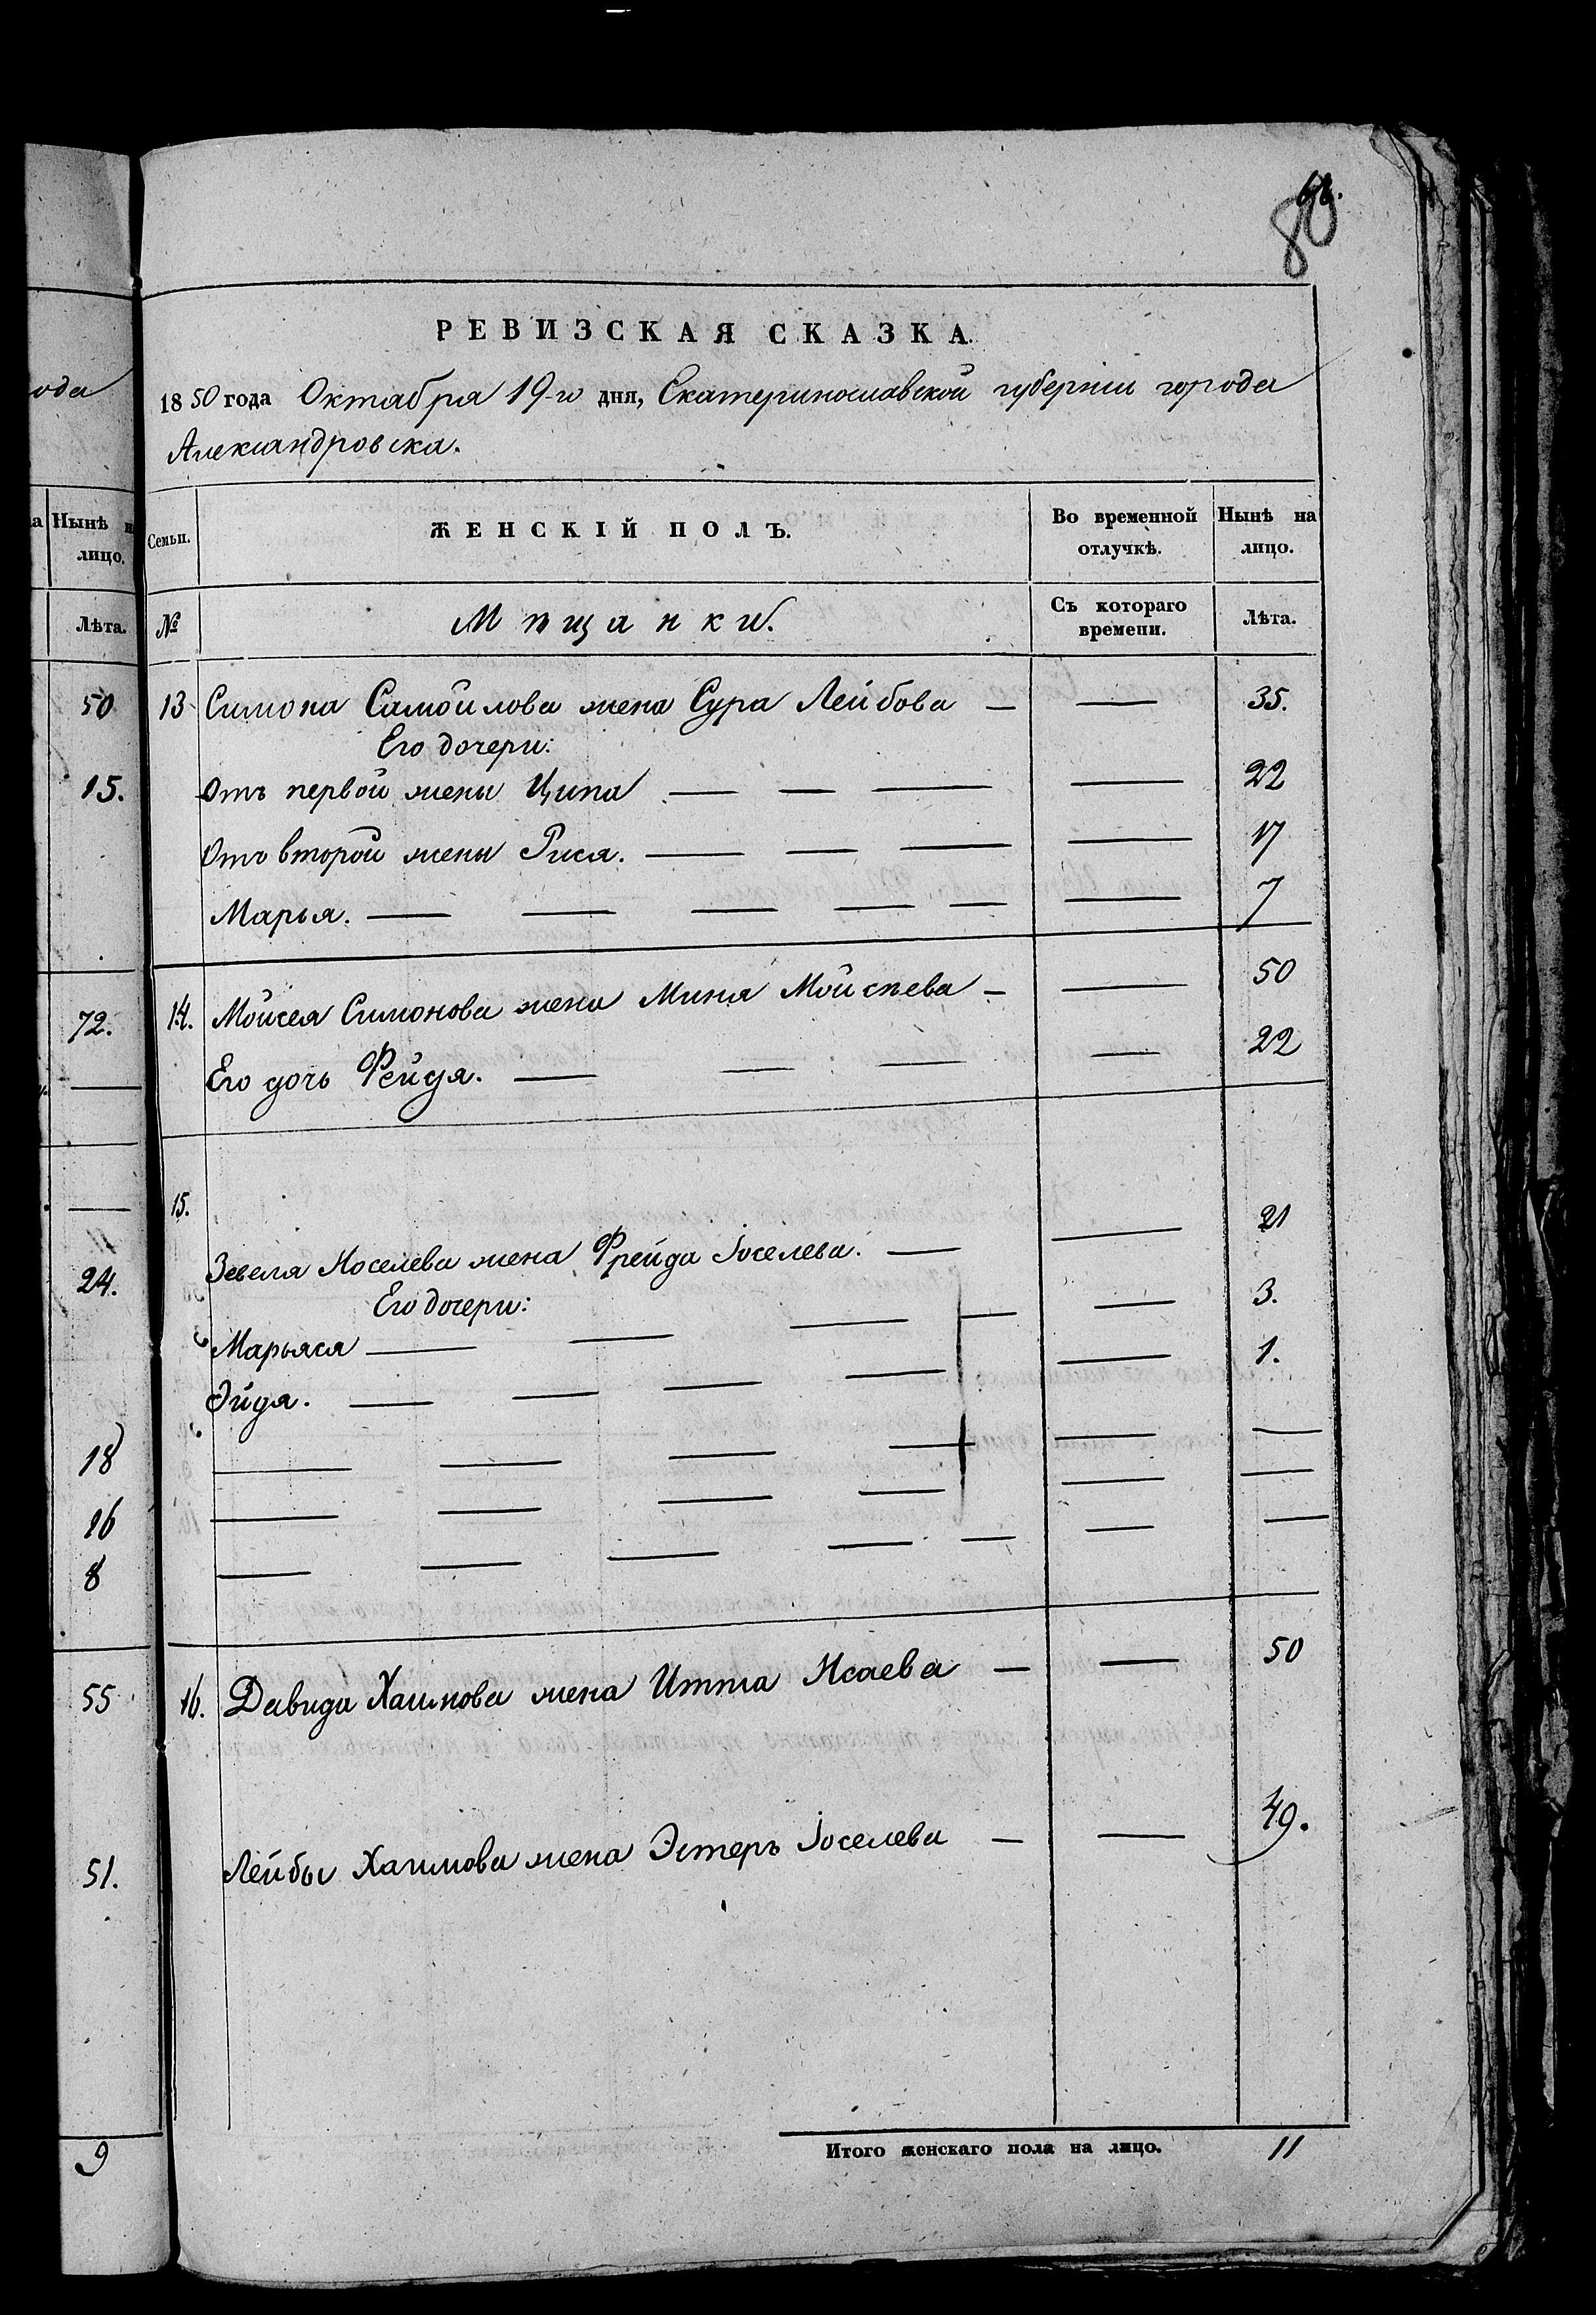 80
ода
РЕВИЗСКАЯ СКАЗКА.
1850 года Октября 19-го дня, Екатеринославской губерніи города
Александровска.
Нынѣ н
лицо.
Лѣта.
50
15.
72.
24.
18
16
8
55
51.
9
Семьи. ЖЕНСКІЙ ПОЛЪ. Во временной отлучкѣ. Нынѣ на лицо.
№ Мѣщанки. Съ котораго времени. Лѣта.
13 Симона Самойлова жена Сура Лейбова — — 35.
Его дочери:
Отъ первой жены Ципа — — — — 22
Отъ второй жены Рися. — — — — 17
Марья. — — — — — — 7
14. Мойсея Симонова жена Миня Мойсѣева — — 50
Его дочь Фейдя. — — — — 22
15.
Зевеля Іоселева жена Фрейда Іоселева. — — 21
Его дочери:
Марьяся — — — — — 3.
Эйдя. — — — — — 1.
— — — — — —
— — — — — —
— — — — — — —
16. Давида Хаимова жена Итта Исаева — — 50
Лейбы Хаимова жена Эстеръ Іоселева — — 49.
Итого женскаго пола на лицо. 11